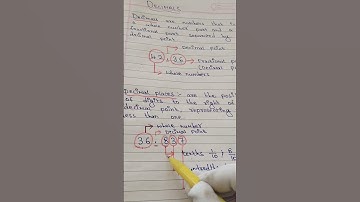 DECIMALS
Decimals are numbers that
whole number part and a
fractional part separated by
decimal point.
decimal point
42.36
fractional
whole numbers
Decimal places:- are the
of digits to the right of
decimal point representing
less than one.
whole number
Decimal Point
36.837
tenths 1/10 / 8/10